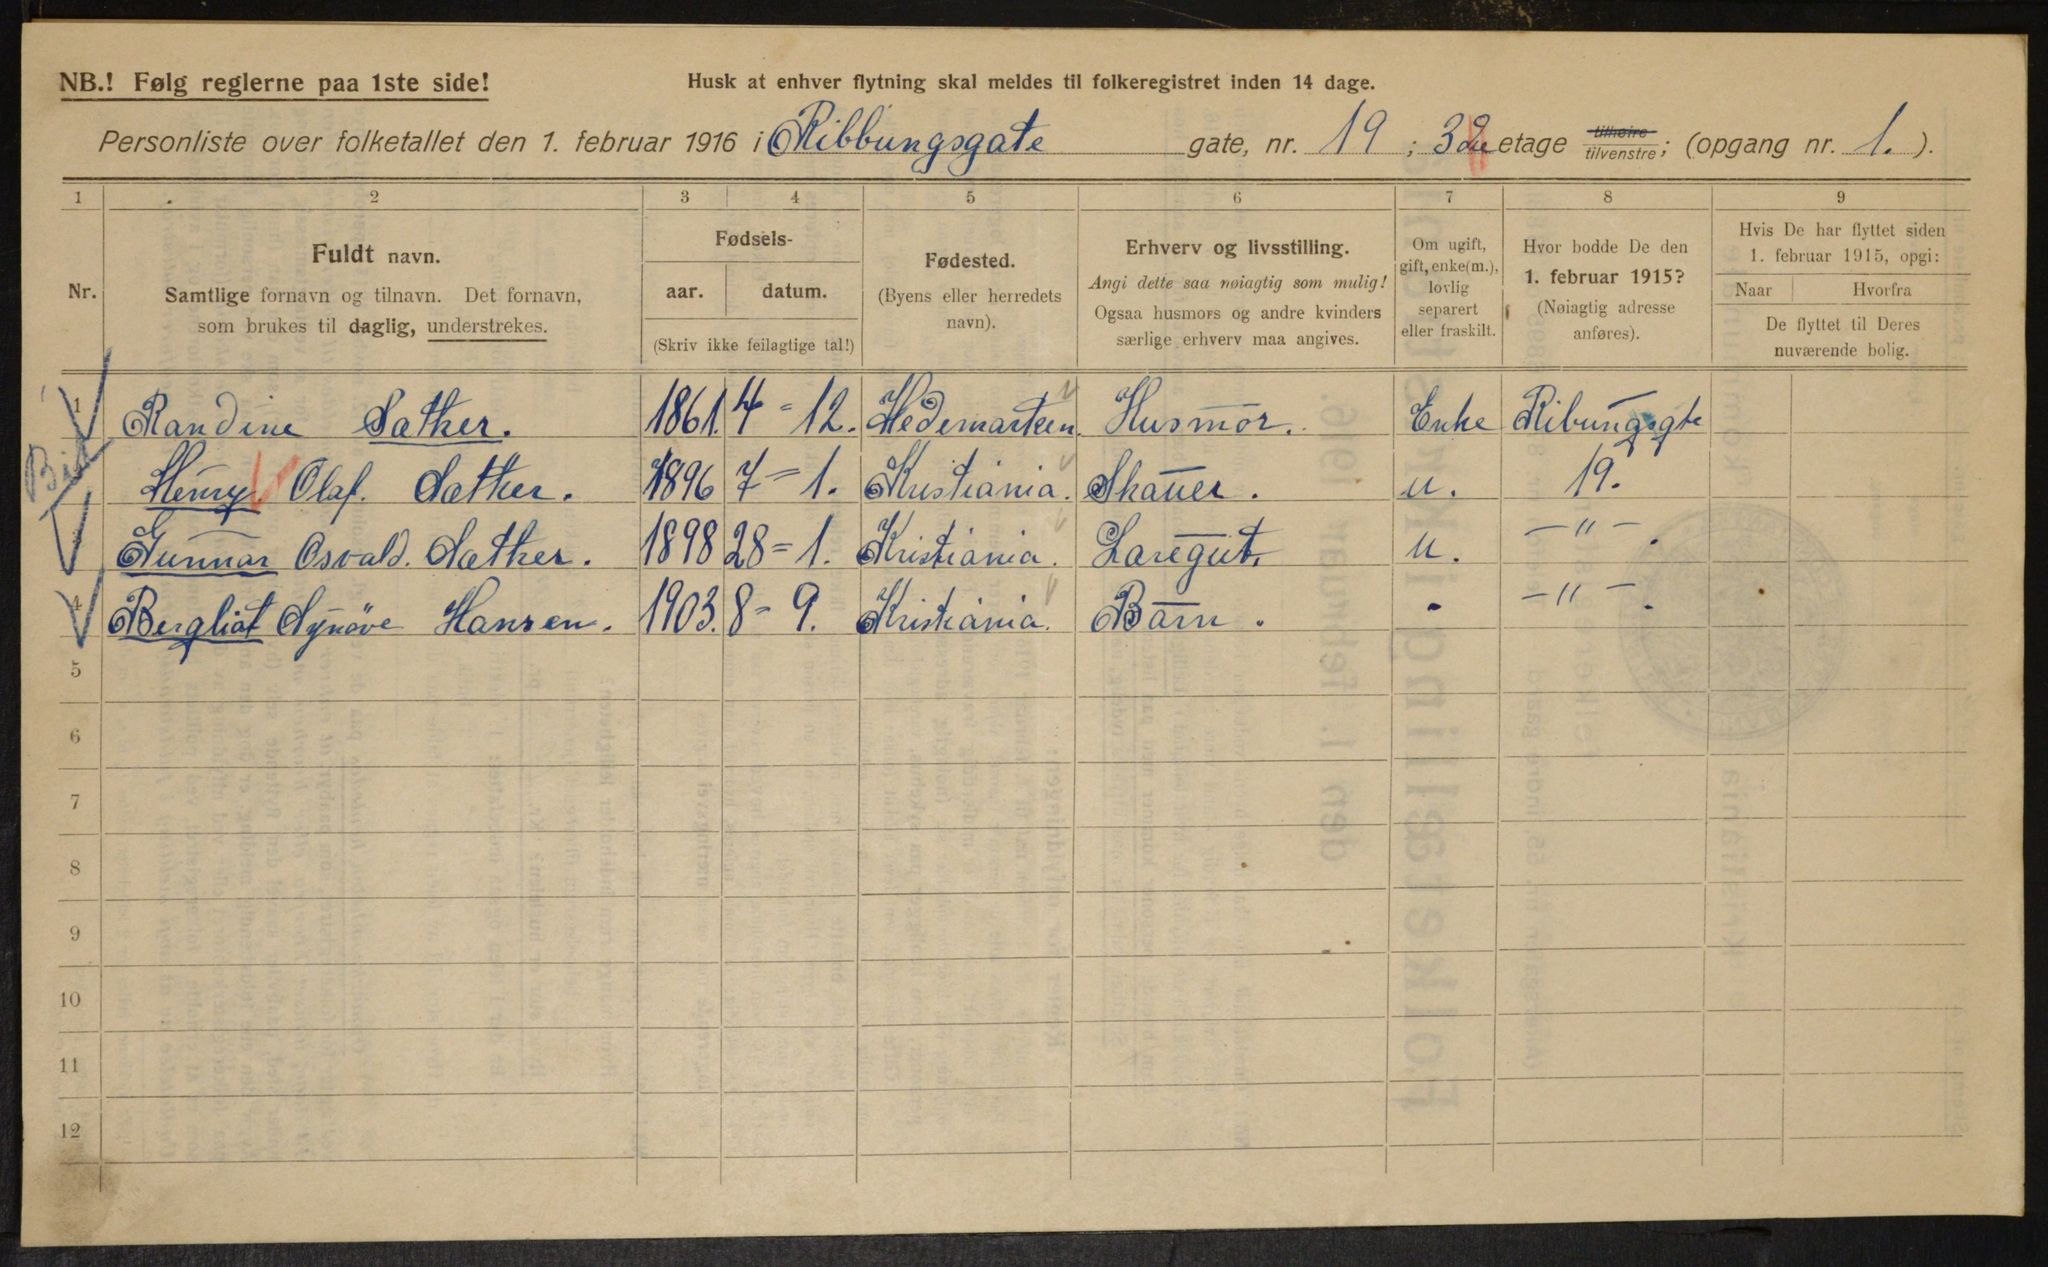 NB.! Følg reglerne paa 1ste side!
Husk at enhver flytning skal meldes til folkeregistret inden 14 dage.
Personliste over folketallet den 1. februar 1916 i Ribbungsgate gate, nr. 19 ; 3 etage tilhøire tilvenstre; (opgang nr. 1. ).
1 2 3 4 5 6 7 8 9
Nr.
Fuldt navn.
Samtlige fornavn og tilnavn. Det fornavn,
som brukes til daglig, understrekes.
Fødsels-
aar. datum.
(Skriv ikke feilagtige tal!)
Fødested.
(Byens eller herredets
navn).
Erhverv og livsstilling.
Angi dette saa nøiagtig som mulig!
Ogsaa husmors og andre kvinders
særlige erhverv maa angives.
Om ugift,
gift, enke(m.),
lovlig
separert
eller fraskilt.
Hvor bodde De den
1. februar 1915?
(Nøiagtig adresse
anføres).
Hvis De har flyttet siden
1. februar 1915, opgi:
Naar Hvorfra
De flyttet til Deres
nuværende bolig.
1 Randine Sæther. 1861. 4 = 12. Hedemarken. Husmor. Enke Ribungsgte
Henry Olaf. Sæther. 1896 7 = 1. Kristiania. Skauer. u. 19.
Gunnar Osvald. Sæther. 1898 28 = 1. Kristiania. Laregut. u. — " — .
4 Bergliot Synöve Hansen. 1903. 8 = 9. Kristiania. Barn. — " — .
5
6
7
8
9
10
11
12